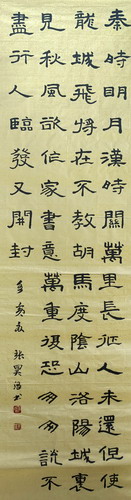 秦時明月漢時關萬里長征人未還但使
龍城飛將在不教胡馬度陰山洛陽城裏
見秋風欲作家書意萬重復恐匆匆說不
盡行人臨發又開封
張翼 書